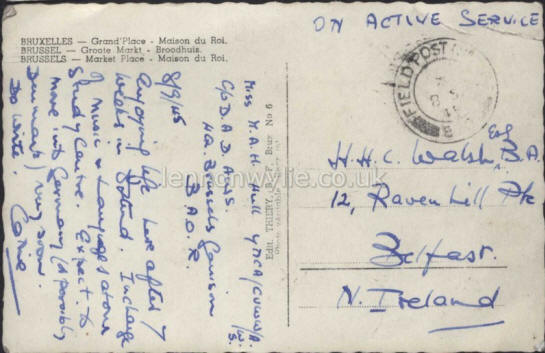 ON ACTIVE SERVICE
BRUXELLES — Grand'Place - Maison du Roi.
BRUSSEL — Groote Markt - Broodhuis.
BRUSSELS — Market Place - Maison du Roi.
FIELD POST
Miss M.A.H. Hull YMCA/CVWW/
C/o D.A.D. A.W.S.
HQ. Brussels Garrison
B.A.O.R.
8/9/45
Enjoying life here after 7
weeks in Ostend. In charge
of Music & Languages at our
Study Centre. Expect to
move into Germany (& possibly
Denmark) very soon.
Do write.
Edit. THIERY, Brux. No 6
H.H.C. Walsh, Esq B.A.
12, Ravenhill Pk
Belfast.
N. Ireland
lennonwylie.co.uk